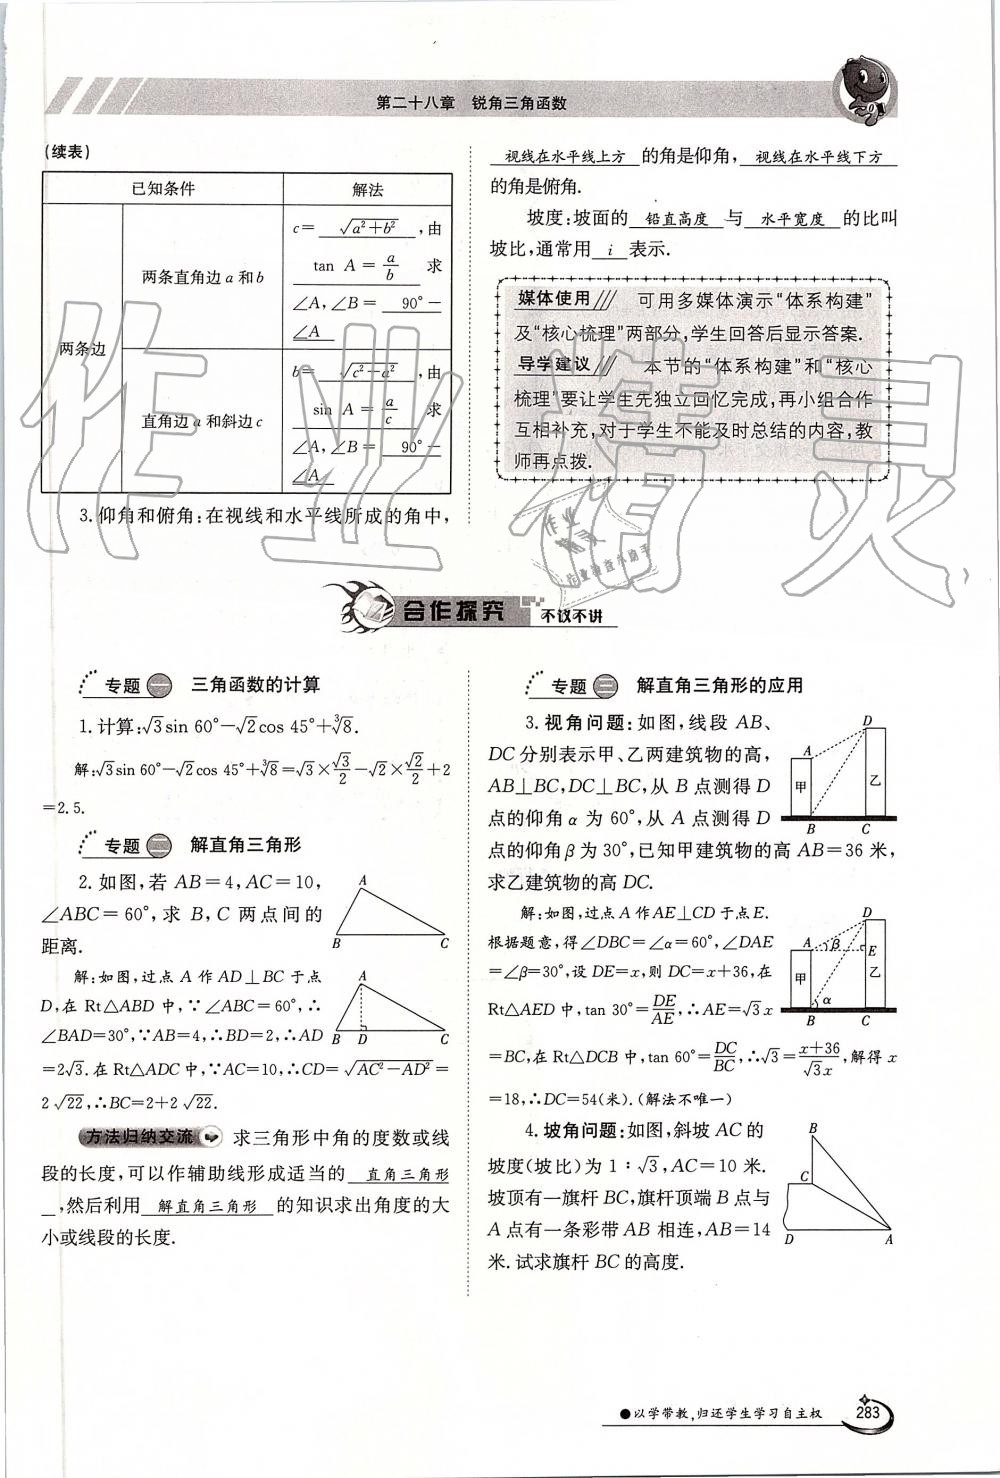 第二十八章 锐角三角函数
(续表)
已知条件 解法
两条边
两条直角边 a 和 b
c= √(a²+b²) ,由
tan A = a/b 求
∠A,∠B= 90°-
∠A
直角边 a 和斜边 c
b= √(c²-a²) ,由
sin A = a/c 求
∠A,∠B= 90°-
∠A
3.仰角和俯角:在视线和水平线所成的角中,
视线在水平线上方 的角是仰角, 视线在水平线下方
的角是俯角.
坡度:坡面的 铅直高度 与 水平宽度 的比叫
坡比,通常用 i 表示.
媒体使用 可用多媒体演示“体系构建”
及“核心梳理”两部分,学生回答后显示答案.
导学建议 本节的“体系构建”和“核心
梳理”要让学生先独立回忆完成,再小组合作
互相补充,对于学生不能及时总结的内容,教
师再点拨.
合作探究 不议不讲
专题一 三角函数的计算
1.计算:√3sin 60°-√2cos 45°+∛8.
解:√3sin 60°-√2cos 45°+∛8=√3×√3/2-√2×√2/2+2
=2.5.
专题二 解直角三角形
2.如图,若 AB=4,AC=10,
∠ABC=60°,求 B,C 两点间的
距离.
A
B C
解:如图,过点 A 作 AD⊥BC 于点
D,在 Rt△ABD 中,∵∠ABC=60°,∴
∠BAD=30°,∵AB=4,∴BD=2,∴AD
=2√3.在 Rt△ADC 中,∵AC=10,∴CD=√(AC²-AD²)=
2√22,∴BC=2+2√22.
A
B D C
方法归纳交流 求三角形中角的度数或线
段的长度,可以作辅助线形成适当的 直角三角形
,然后利用 解直角三角形 的知识求出角度的大
小或线段的长度.
专题三 解直角三角形的应用
3.视角问题:如图,线段 AB、
DC 分别表示甲、乙两建筑物的高,
AB⊥BC,DC⊥BC,从 B 点测得 D
点的仰角α为 60°,从 A 点测得 D
点的仰角β为 30°,已知甲建筑物的高 AB=36 米,
求乙建筑物的高 DC.
D
A
甲 乙
B C
解:如图,过点 A 作 AE⊥CD 于点 E.
根据题意,得∠DBC=∠α=60°,∠DAE
=∠β=30°,设 DE=x,则 DC=x+36,在
Rt△AED 中,tan 30°=DE/AE,∴AE=√3x
=BC,在 Rt△DCB 中,tan 60°=DC/BC,∴√3=(x+36)/√3x,解得 x
=18,∴DC=54(米).(解法不唯一)
D
A β E
甲 乙
α
B C
4.坡角问题:如图,斜坡 AC 的
坡度(坡比)为 1∶√3,AC=10 米.
坡顶有一旗杆 BC,旗杆顶端 B 点与
A 点有一条彩带 AB 相连,AB=14
米.试求旗杆 BC 的高度.
B
C
D A
●以学带教,归还学生学习自主权
283
作业精灵
作业
精灵